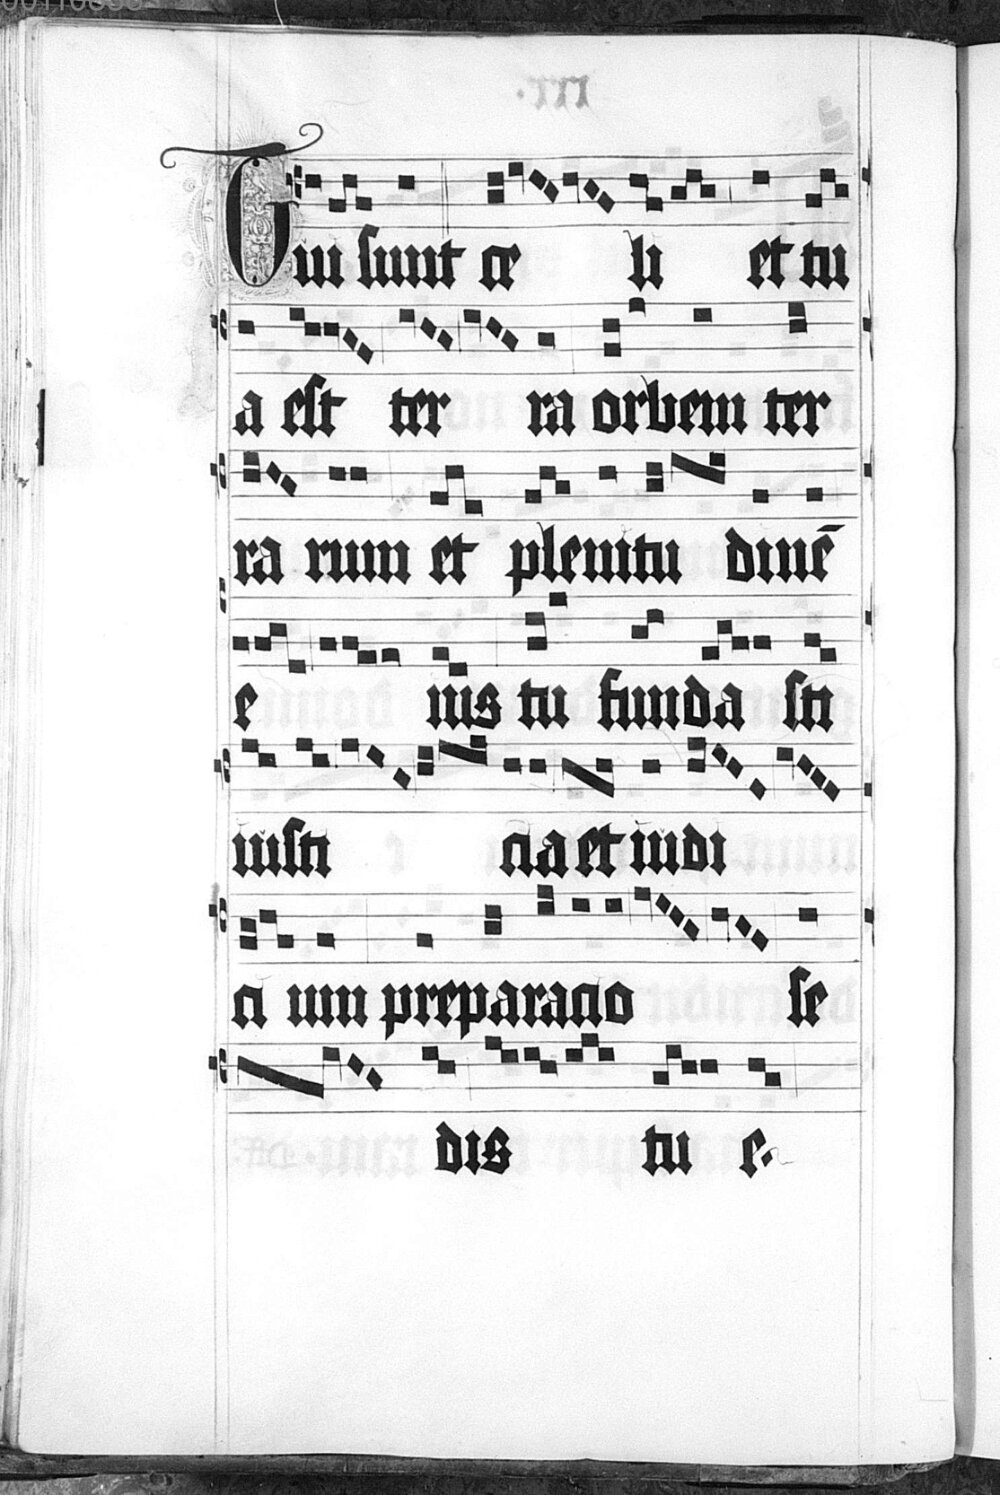 Tui sunt ce li et tu
a est ter ra orbem ter
ra rum et plenitu dinē
e ius tu funda sti
iusti cia et iudi
ci um preparacio se
dis tu e.